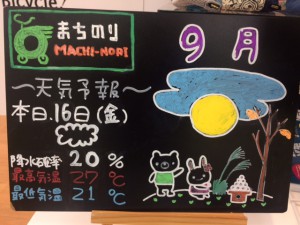 Bicycle
まちのり
MACHI-NORI
9月
～天気予報～
本日.16日(金)
降水確率 20%
最高気温 27℃
最低気温 21℃